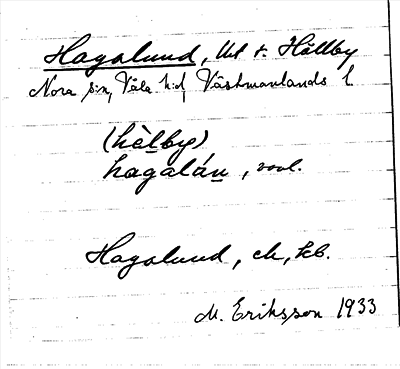 Hagalund, lht t. Hällby
Nora sn, Våla hd, Västmanlands l
(hälby)
hagalún, vovl.
Hagalund, ek, kb.
M. Eriksson 1933